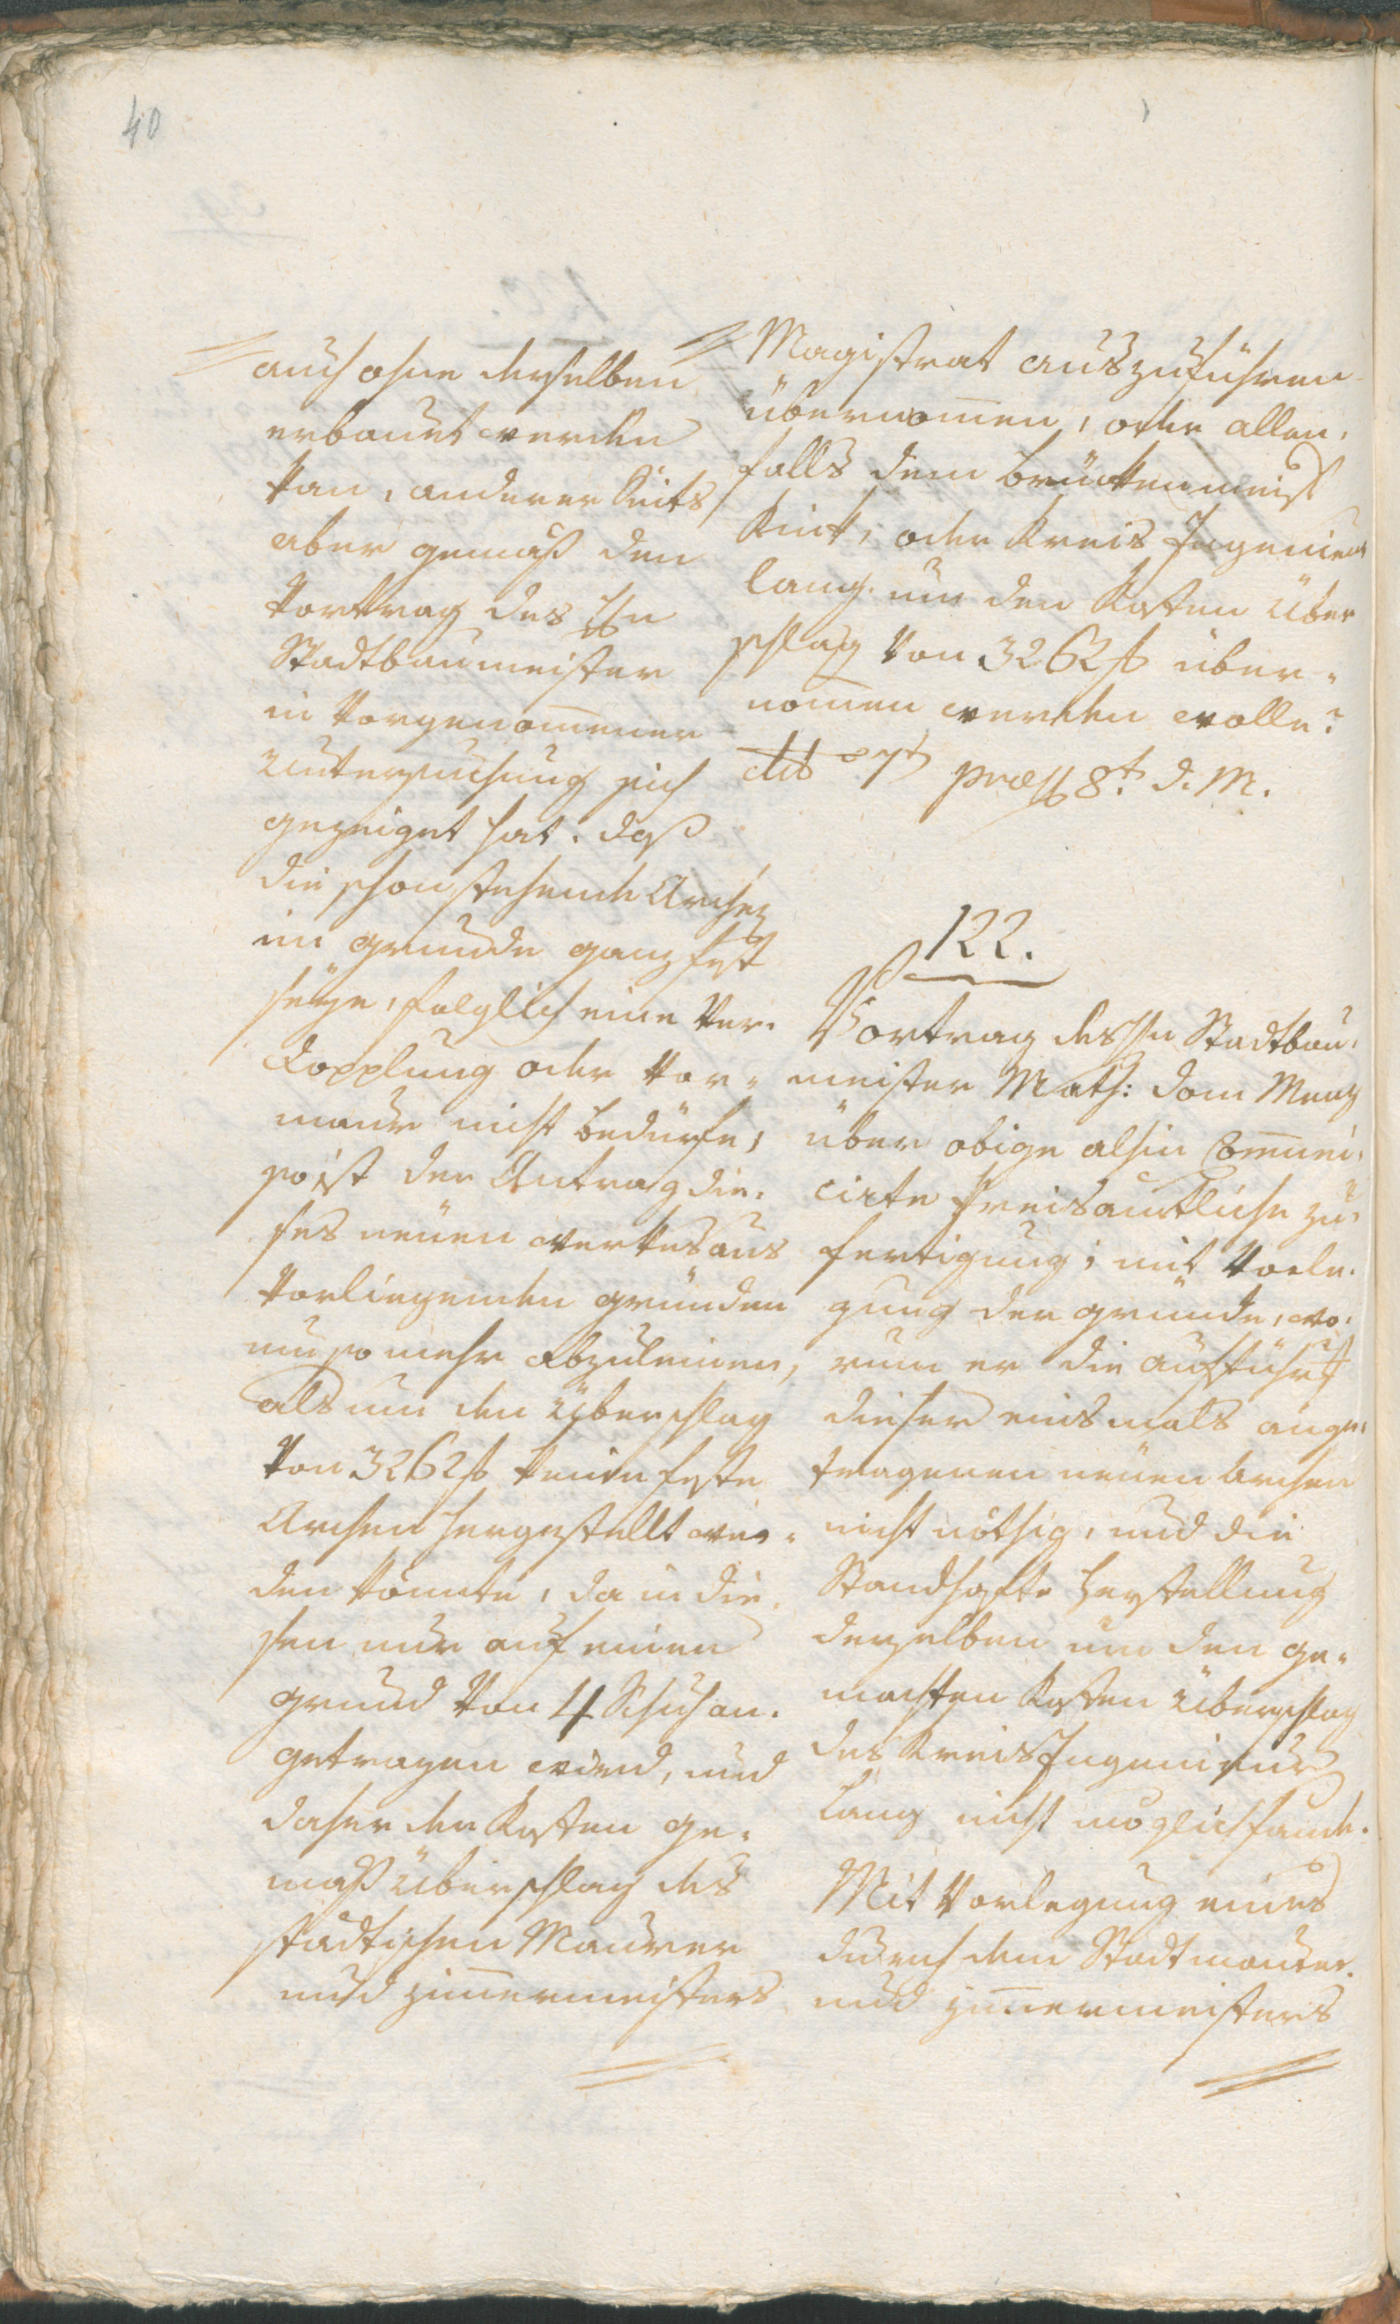 40
auch ohne derselben
erbauet werden
kan, anderer Seits
aber gemäß den
Vortrag des Hn
Stadtbaumeister
in Vorgenommener
Untersuchung sich
gezeiget hat, daß
die schon stehende Archen
im grunde ganz fest
seÿe, folglich eine Ver-
dopplung oder Vor-
maur nicht bedürfe;
so ist der Antrag die-
ses neuen werkes aus
Vorliegenden gründen
um so mehr abzuleinen,
als um den Überschlag
Von 3262 f keine feste
Archen hergestellt wer-
den könnte, da in die-
sen nur auf einen
grund Von 4 Schuh an-
getragen wird, und
daher der Kosten ge-
mäß Überschlag des
städtischen Maurer
und Zimmermeisters
Magistrat auszuführen
übernommen, oder allen-
falls dem Brückenmeist
Kink, oder Kreis Ingenieur
Lang um den Kosten Über
schlag Von 3262 f über-
nommen werden wolle?
dto 7t præss 8t. d. M.
122.
Vortrag des Hn Stadtbau-
meister Math: Dom Menz
über obige alhin Communi-
cirte Kreisamtliche Zu-
fertigung; mit Vorle-
gung der gründe, wo-
rum er die Ausführung
dieser einsmals ange-
tragenen neuen Archen
nicht nöthig, und die
Standhafte Herstellung
derselben um den ge-
machten Kosten Überschlag
des Kreis Ingenieurs
Lang nicht möglich fande.
Mit Vorlegung eines
durch dem Stadtmaurer
und Zimmermeisters